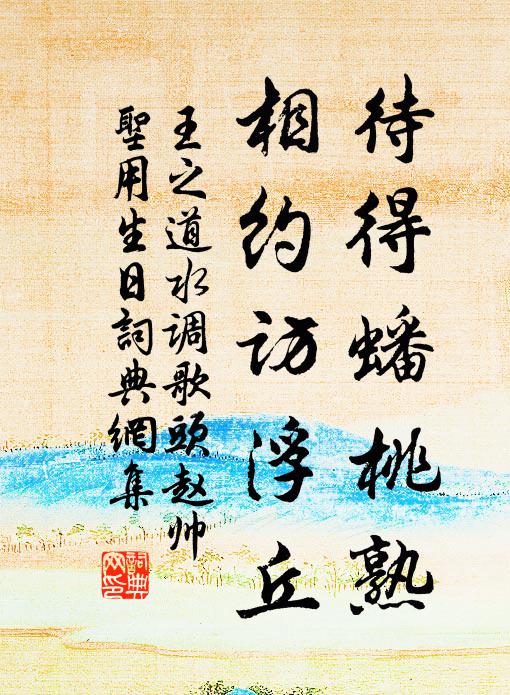 待得蟠桃熟
相約访浮丘
王之道水调歌頭赵帅
聖用生日詞典網集
詞典